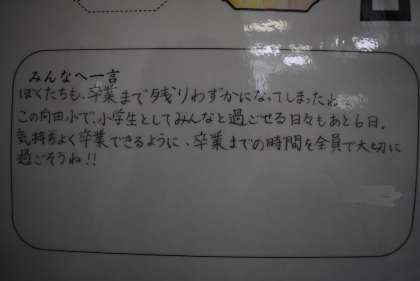 みんなへ一言
ぼくたちも、卒業まで残りわずかになってしまったね。
この向田小で、小学生としてみんなと過ごせる日々もあと6日。
気持ちよく卒業できるように、卒業までの時間を全員で大切に
過ごそうね!!